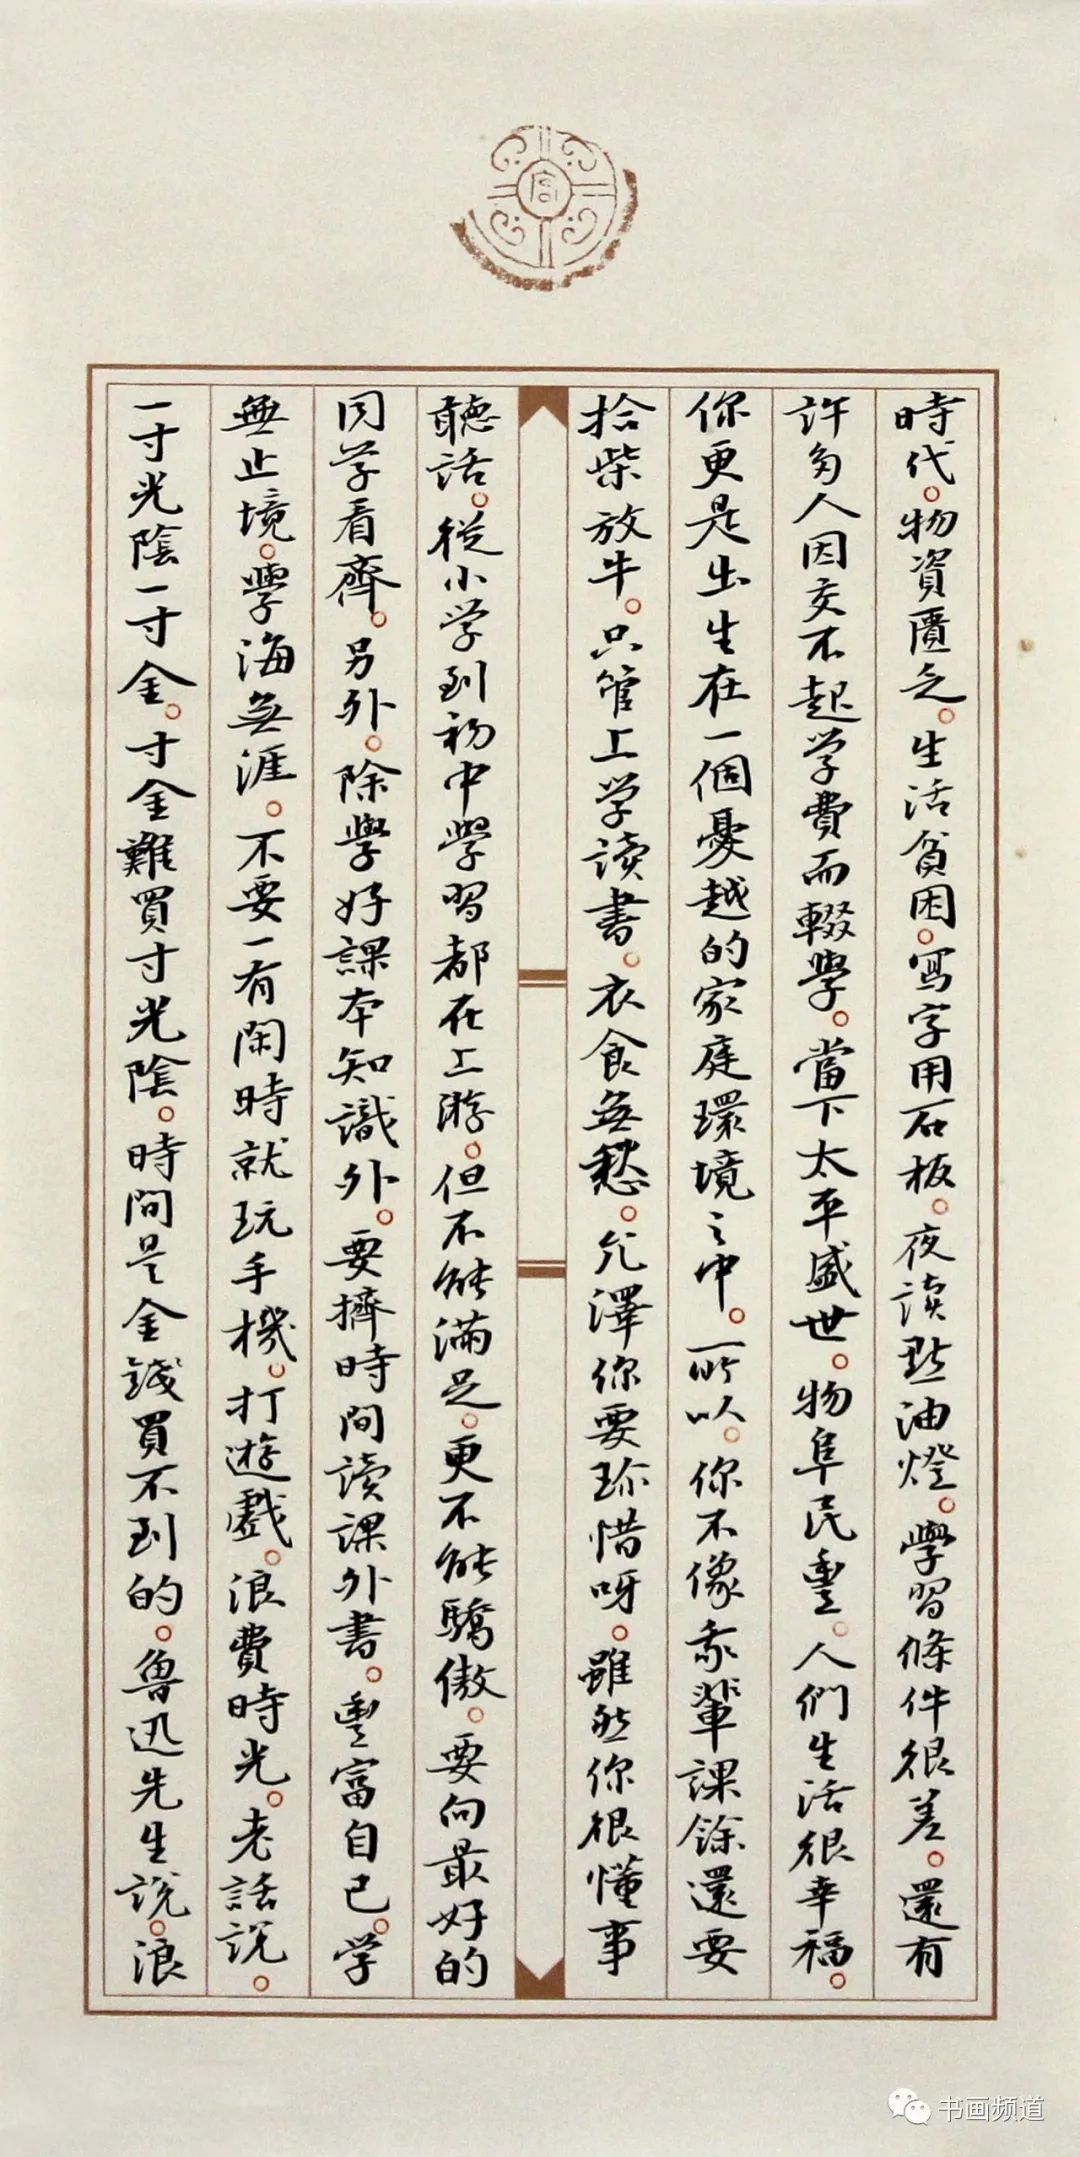 時代。物資匱乏。生活貧困。寫字用石板。夜读點油燈。學習條件很差。還有
許多人因交不起学費而輟學。當下太平盛世。物阜民豐。人們生活很幸福。
你更是出生在一個憂越的家庭環境之中。所以。你不像我輩課餘還要
拾柴放牛。只管上学读書。衣食無愁。允澤你要珍惜呀。雖然你很懂事
聽话。從小学到初中學習都在上游。但不能滿足。更不能驕傲。要向最好的
同学看齊。另外。除學好課本知識外。要擠時间读課外書。豐富自己。学
無止境。學海無涯。不要一有閑時就玩手機。打遊戲。浪費時光。老話説。
一寸光陰一寸金。寸金難買寸光陰。時间是金錢買不到的。魯迅先生説。浪
书画频道